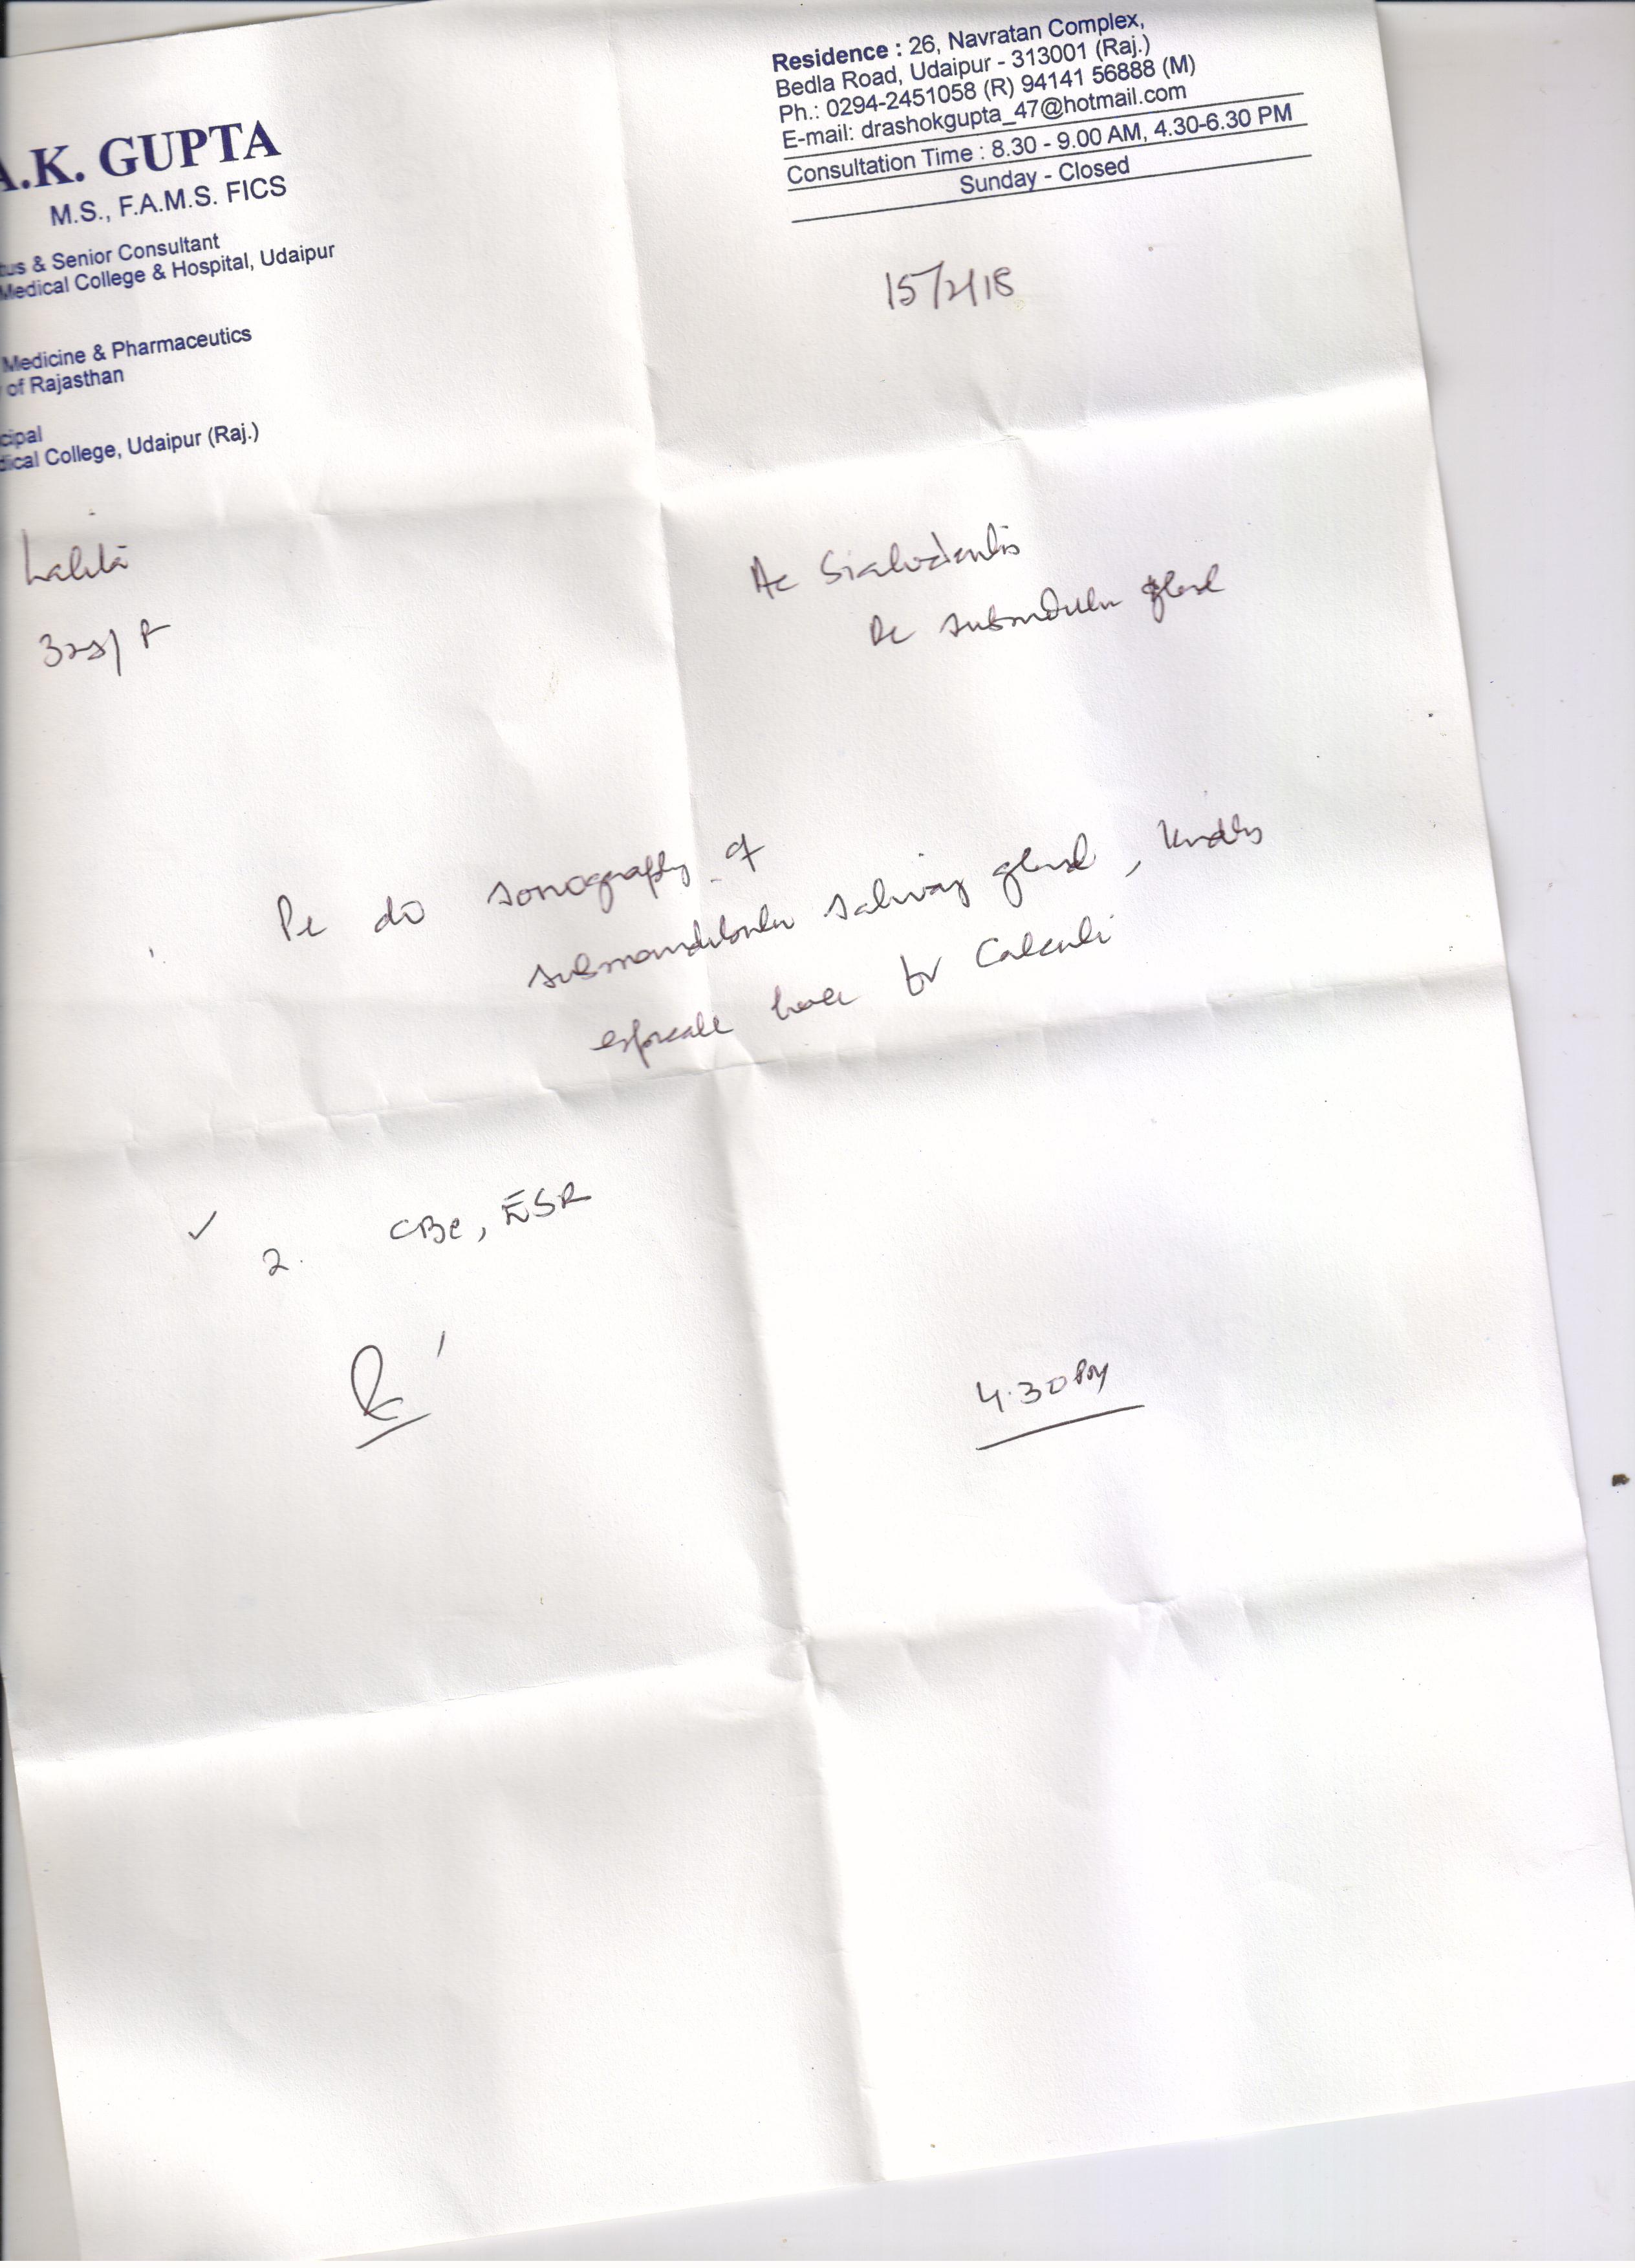 A.K. GUPTA
M.S., F.A.M.S. FICS
tus & Senior Consultant
Medical College & Hospital, Udaipur
Medicine & Pharmaceutics
of Rajasthan
cipal
dical College, Udaipur (Raj.)
Residence : 26, Navratan Complex,
Bedla Road, Udaipur - 313001 (Raj.)
Ph.: 0294-2451058 (R) 94141 56888 (M)
E-mail: drashokgupta_47@hotmail.com
Consultation Time : 8.30 - 9.00 AM, 4.30-6.30 PM
Sunday - Closed
15/2/18
Lalita
Ac Sialodenitis
submandibular gland
Pl do sonography of
submandibular salivary gland,
for Calculi
✓ 2. CBC, ESR
4.30 PM